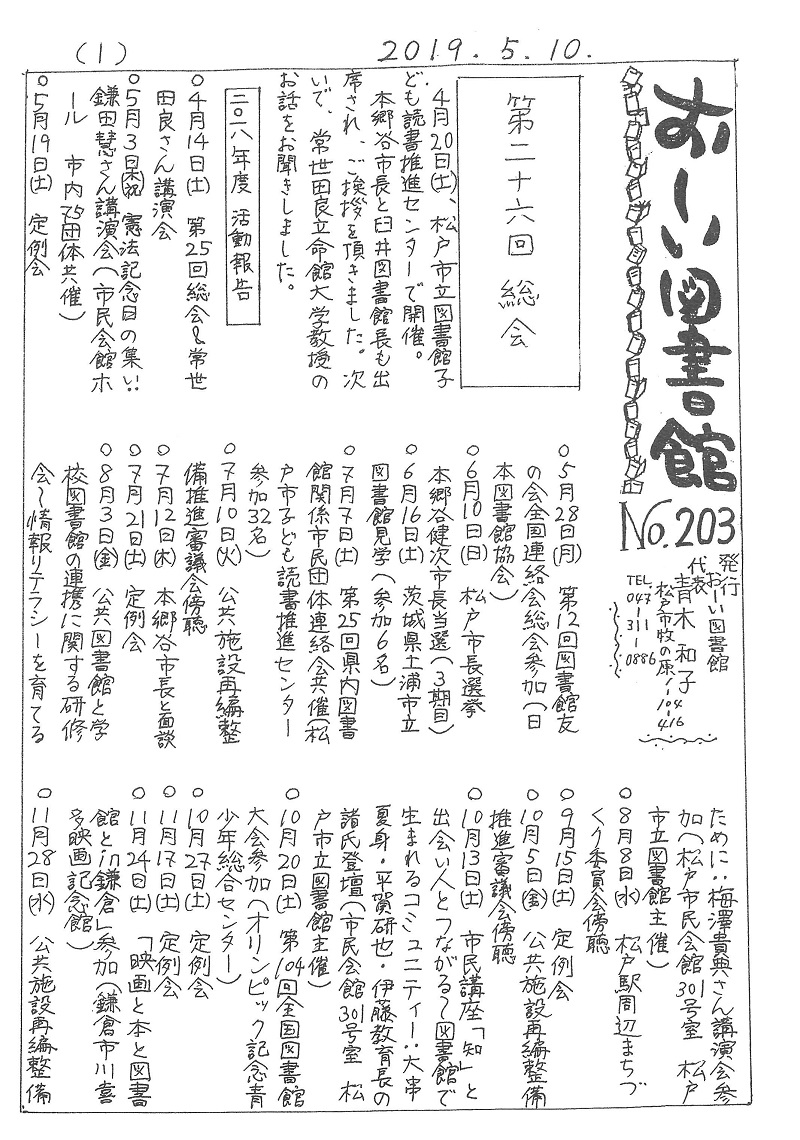 (1)
2019.5.10.
おーい図書館
No.203
発行
おーい図書館
代表
青木和子
松戸市牧の原1-104
416
TEL
047
-311
-0886
第二十六回 総会
4月20日(土)、松戸市立図書館子
ども読書推進センターで開催。
本郷谷市長と臼井図書館長も出
席され、ご挨拶を頂きました。次
いで、常世田良立命館大学教授の
お話をお聞きしました。
二〇一八年度 活動報告
○4月14日(土) 第25回総会&常世
田良さん講演会
○5月3日(木祝) 憲法記念日の集い:
鎌田慧さん講演会(市民会館ホ
ール 市内75団体共催)
○5月19日(土) 定例会
○5月28日(月) 第12回図書館友
の会全国連絡会総会参加(日
本図書館協会)
○6月10日(日) 松戸市長選挙
本郷谷健次市長当選(3期目)
○6月16日(土) 茨城県土浦市立
図書館見学(参加6名)
○7月7日(土) 第25回県内図書
館関係市民団体連絡会共催(松
戸市子ども読書推進センター
参加32名)
○7月10日(火) 公共施設再編整
備推進審議会傍聴
○7月12日(木) 本郷谷市長と面談
○7月21日(土) 定例会
○8月3日(金) 公共図書館と学
校図書館の連携に関する研修
会〜情報リテラシーを育てる
ために:梅澤貴典さん講演会参
加(松戸市民会館301号室 松戸
市立図書館主催)
○8月8日(水) 松戸駅周辺まちづ
くり委員会傍聴
○9月15日(土) 定例会
○10月5日(金) 公共施設再編整備
推進審議会傍聴
○10月13日(土) 市民講座「知」と
出会い人とつながる〜図書館で
生まれるコミュニティー:大串
夏身・平賀研也・伊藤教育長の
諸氏登壇(市民会館301号室 松
戸市立図書館主催)
○10月20日(土) 第104回全国図書館
大会参加(オリンピック記念青
少年総合センター)
○10月27日(土) 定例会
○11月17日(土) 定例会
○11月24日(土) 「映画と本と図書
館とin鎌倉」参加(鎌倉市川喜
多映画記念館)
○11月28日(水) 公共施設再編整備